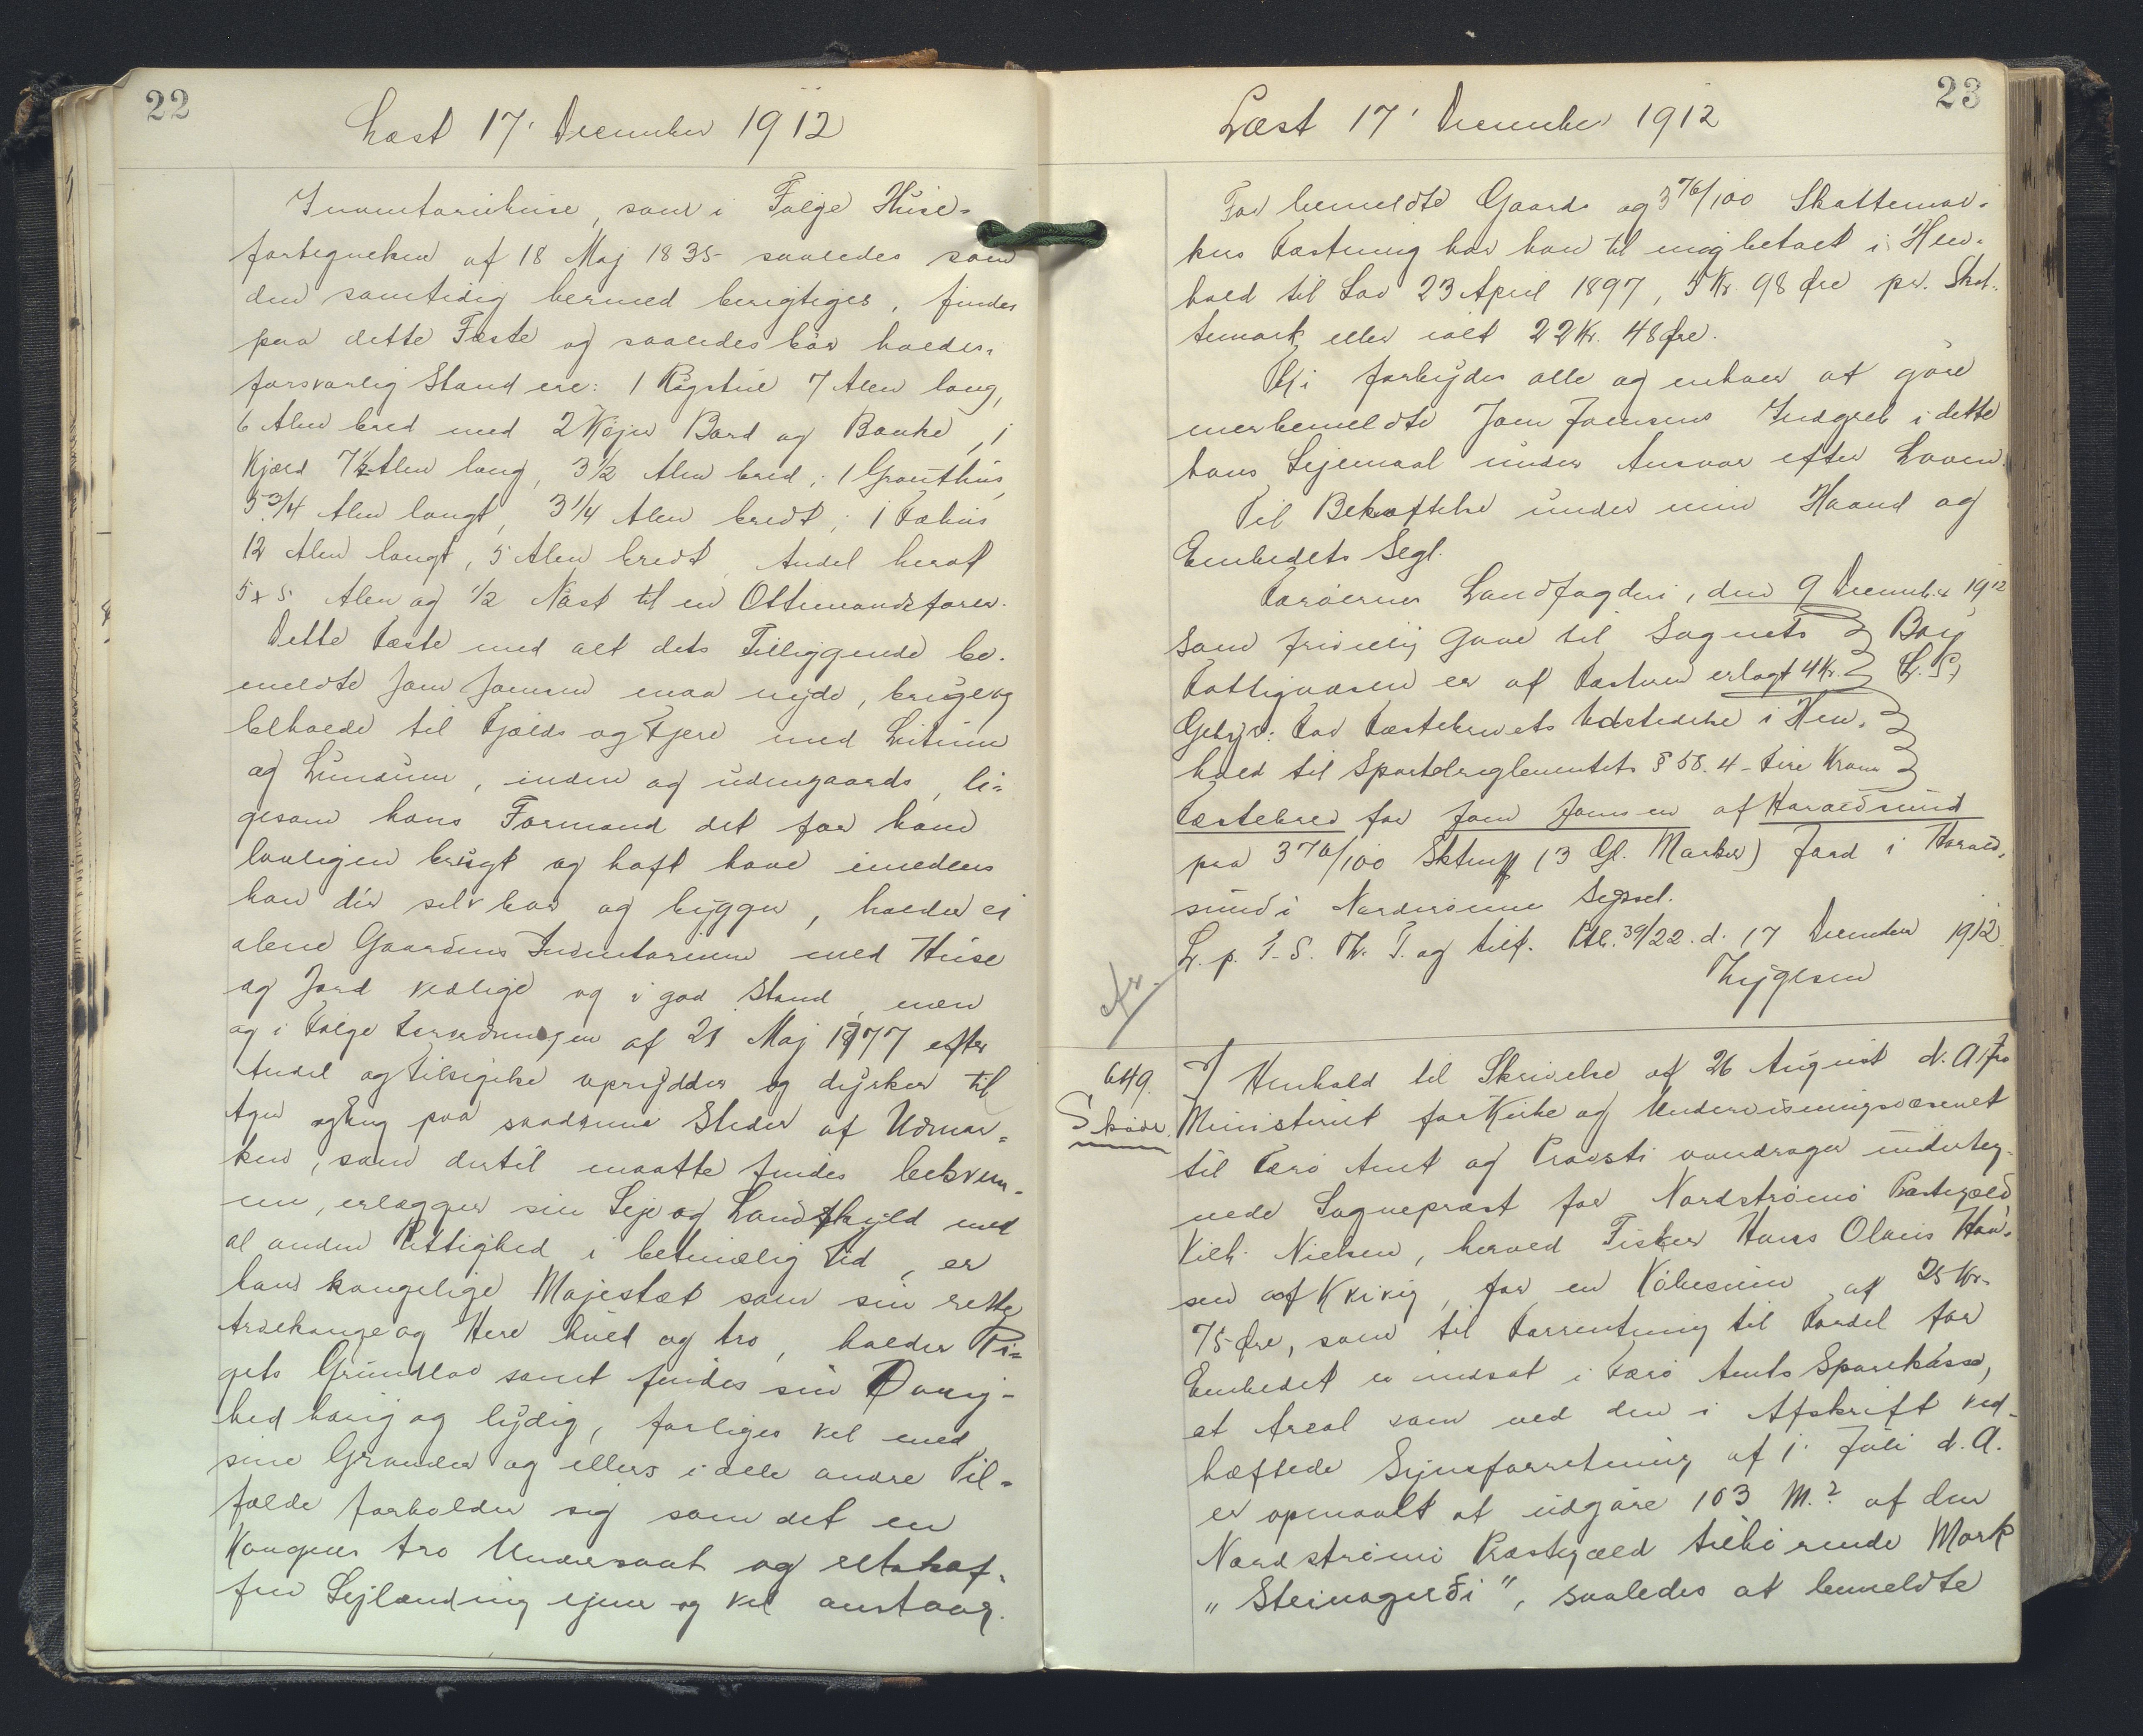 22
Læst 17' December 1912
Inventariehuse, som i Følge Huse=
fortegnelsen af 18 Maj 1835 saaledes som
den samtidig hermed berigtiges, findes
paa dette Fæste og saaledes bør holdes i
forsvarlig Stand ere: 1 Røgstue 7 Alen lang,
6 Alen bred med 2 Køjer Bord og Bænke, 1
Kjæld 7½ Alen lang, 3½ Alen bred; 1 Grouthus
5 3/4 Alen langt, 3 1/4 Alen bredt; 1 Fæhus
12 Alen langt, 5 Alen bredt, Andel heraf
5 x 5 Alen og 1/2 Nøst til en Ottemandsfarer.
Dette Fæste med alt dets Tilliggende be-
meldte Joen Joensen maa nyde, bruge og
beholde til Fjelds og Fjere med Lutum
og Lundum, inden og udengaards, li=
gesom hans Formand det før ham
lovligen brugt og haft have imedens
han dér selv bor og bygger, holder ej
alene Gaardens Inventarium med Huse
og Jord vedlige og i god Stand, men
og i Følge Forordningen af 21 Maj 1777 efter
Andel og Tilsigelse oprydder og dyrker til
Ager og Eng paa saadanne Steder af Udmar=
ken, som dertil maatte findes bekvem-
me, erlægger sin Leje og Landskyld med
al anden Rettighed i betimelig Tid, er
hans kongelige Majestæt som sin rette
Arvekonge og Herre huld og tro, holder Ri=
gets Grundlov samt findes sin Øvrig-
hed hørig og lydig, forliges vel med
sine Grander og ellers i alle andre Til=
fælde forholder sig som det en
Kongens tro Undersaat og retskaf-
fen Lejlænding egner og vel anstaar.
23
Læst 17' December 1912
For bemeldte Gaards og 3 76/100 Skattemar-
kers Fæstning har han til mig betalt i Hen-
hold til Lov 23 April 1897, 5 Kr. 98 Øre pr. Skat-
temark eller ialt 22 Kr. 48 Øre.
Thi forbydes alle og enhver at gøre
merbemeldte Joen Joensens Indgreb i dette
hans Lejemaal under Ansvar efter Loven.
Til Bekræftelse under min Haand og
Embedets Segl.
Færøernes Landfogderi, den 9 Decemb. 1912
Som frivillig Gave til Sognets
Fattigvæsen er af Fæsteren erlagt 4 Kr.
Bay
L. S.
Gebyr: For Fæstebrevets Udstedelse i Hen-
hold til Sportelreglementets § 58. 4 - Fire Kroner
Fæstebrev for Joen Joensen af Haraldsund
paa 3 76/100 Sktmf (3 Gl. Marker) Jord i Harald-
sund i Norderøernes Syssel.
L. p. F. S. Th. T. og tilf. Ptl. 39/22. d. 17 December 1912.
Thygesen
649.
Skøde.
I Henhold til Skrivelse af 26 August d. A. fra
Ministeriet for Kirke og Undervisningsvæsenet
til Færø Amt og Provsti overdrager underteg-
nede Sognepræst for Nordstrømø Præstegæld
Vilh. Nielsen, herved Fisker Hans Olavis Han-
sen af Kvivig, for en Købesum af 25 Kr.
75 Øre, som til Forrentning til Fordel for
Embedet er indsat i Færø Amts Sparekasse,
et Areal som ved den i Afskrift ved-
hæftede Synsforretning af 1' Juli d. A.
er opmaalt at udgøre 103 M.² af den
Nordstrømø Præstegæld tilhørende Mark
"Steinagerði", saaledes at bemeldte